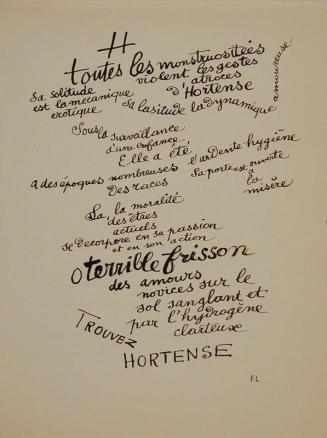 H
toutes les monstruositées
violent les gestes
atroces
d'Hortense
Sa solitude
est la mecanique
erotique
Sa lasitude la dynamique
amoureuse
Sous la surveillance
d'une enfance
Elle a été,
a des époques nombreuses
l'ardente hygiène
Des races
Sa porte est ouverte
à
la
misère
La, la moralité
des êtres
actuels
se Decorpore en sa passion
et en son action
O terrible frisson
des amours
novices sur le
sol sanglant et
par l'hydrogène
clarteuse
TROUVEZ
HORTENSE
F.L